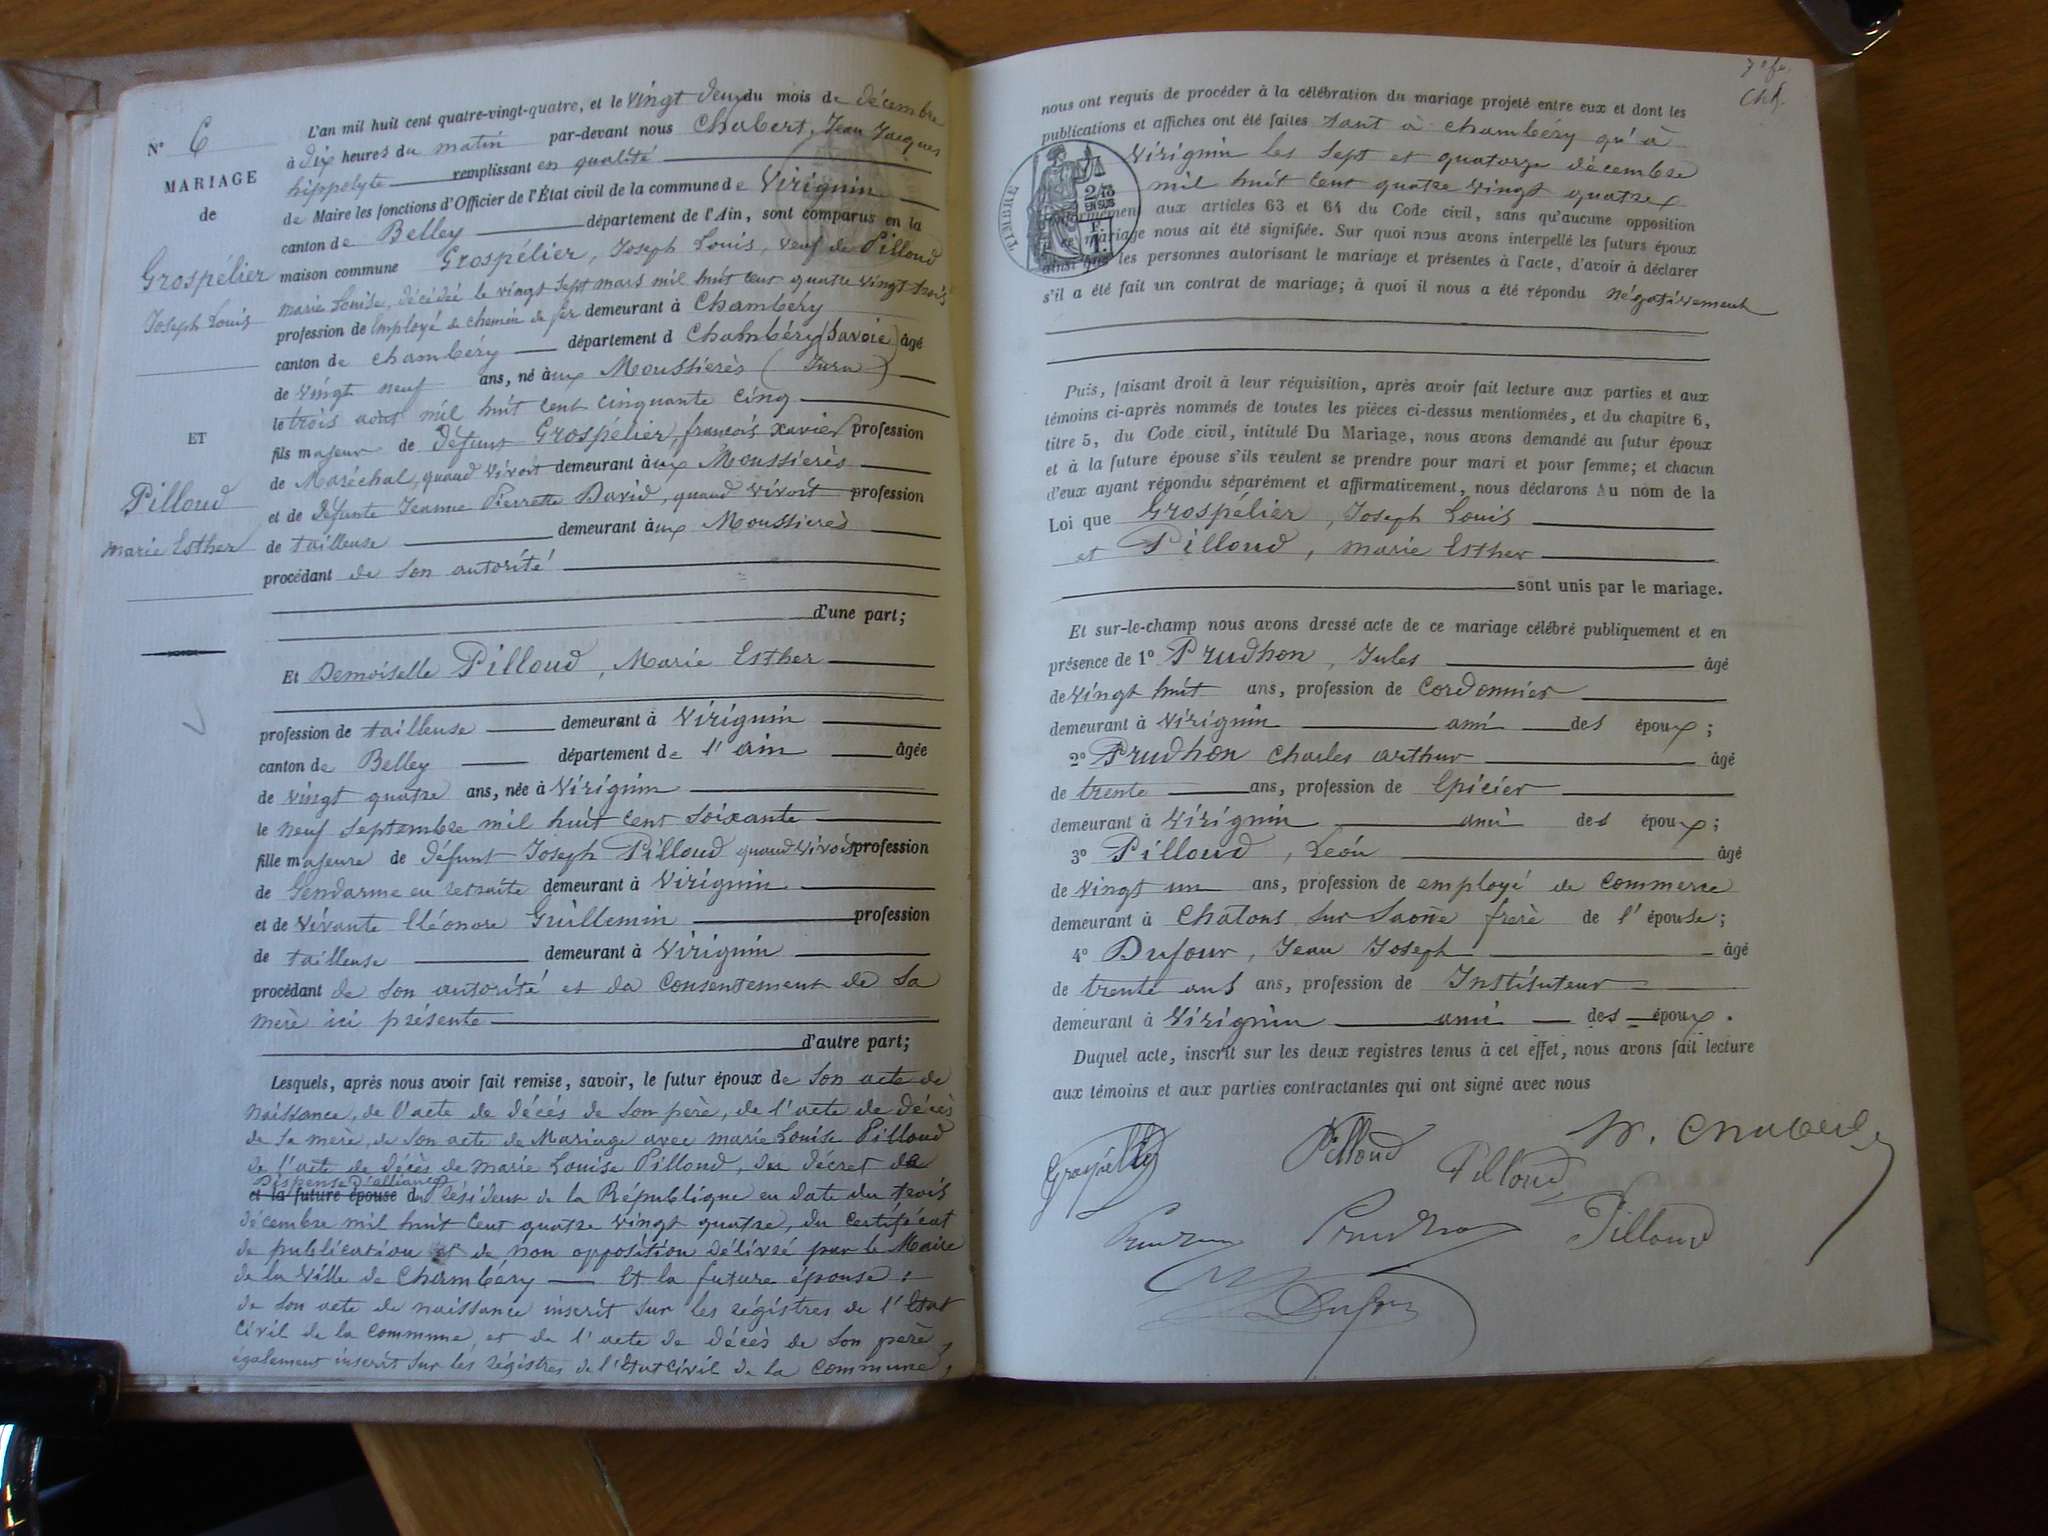 N° 6
MARIAGE
de
Grospélier
Joseph Louis
ET
Pilloud
Marie Esther
L'an mil huit cent quatre-vingt-quatre, et le vingt deux du mois de décembre
à dix heures du matin par-devant nous Chabert, Jean Jacques
hippolyte remplissant en qualité
de Maire les fonctions d'Officier de l'État civil de la commune de Virignin
canton de Belley département de l'Ain, sont comparus en la
maison commune Grospélier, Joseph Louis, veuf de Pilloud
Marie Louise, décédée le vingt sept mars mil huit cent quatre vingt trois
profession de Employé de chemin de fer demeurant à Chambéry
canton de Chambéry département d Chambéry (Savoie) âgé
de vingt neuf ans, né aux Moussierès (Jura)
le trois août mil huit cent cinquante cinq
fils majeur de défunt Grospélier, francois xavier profession
de Maréchal, quand vivoit demeurant aux Moussierès
et de défunte Jeanne Pierrette David, quand vivoit profession
de tailleuse demeurant aux Moussierès
procédant de son autorité
d'une part;
Et Demoiselle Pilloud, Marie Esther
profession de tailleuse demeurant à Virignin
canton de Belley département de l'ain âgée
de vingt quatre ans, née à Virignin
le neuf septembre mil huit cent soixante
fille majeure de défunt Joseph Pilloud quand vivoit profession
de Gendarme en retraite demeurant à Virignin
et de vivante Eléonore Guillemin profession
de tailleuse demeurant à Virignin
procédant de son autorité et du consentement de sa
mère ici présente
d'autre part;
Lesquels, après nous avoir fait remise, savoir, le futur époux de son acte de
naissance, de l'acte de décès de son père, de l'acte de décès
de sa mère, de son acte de Mariage avec marie Louise Pilloud
de l'acte de décès de marie Louise Pilloud, du décret de
Dispense d'alliance
et la future épouse du Président de la République en date du trois
décembre mil huit cent quatre vingt quatre, du certificat
de publication et de non opposition délivré par le Maire
de la ville de Chambéry — Et la future épouse :
de son acte de naissance inscrit sur les régistres de l'Etat
civil de la commune et de l'acte de décès de son père
également inscrit sur les régistres de l'état civil de la commune,
7e fe.
Ch.
nous ont requis de procéder à la célébration du mariage projeté entre eux et dont les
publications et affiches ont été faites tant à chambéry qu'à
Virignin les sept et quatorze décembre
mil huit cent quatre vingt quatre
TIMBRE
2/10 EN SUS
conformément aux articles 63 et 64 du Code civil, sans qu'aucune opposition
à ce mariage nous ait été signifiée. Sur quoi nous avons interpellé les futurs époux
ainsi que les personnes autorisant le mariage et présentes à l'acte, d'avoir à déclarer
s'il a été fait un contrat de mariage; à quoi il nous a été répondu négativement
Puis, faisant droit à leur réquisition, après avoir fait lecture aux parties et aux
témoins ci-après nommés de toutes les pièces ci-dessus mentionnées, et du chapitre 6,
titre 5, du Code civil, intitulé Du Mariage, nous avons demandé au futur époux
et à la future épouse s'ils veulent se prendre pour mari et pour femme; et chacun
d'eux ayant répondu séparément et affirmativement, nous déclarons Au nom de la
Loi que Grospélier, Joseph Louis
et Pilloud, marie Esther
sont unis par le mariage.
Et sur-le-champ nous avons dressé acte de ce mariage célébré publiquement et en
présence de 1° Prudhon, Jules âgé
de vingt huit ans, profession de Cordonnier
demeurant à Virignin ami des époux;
2° Prudhon Charles arthur âgé
de trente ans, profession de Epicier
demeurant à Virignin ami des époux;
3° Pilloud, Léon âgé
de vingt un ans, profession de employé de commerce
demeurant à Châlons sur Saône frerè de l'épouse;
4° Dufour, Jean Joseph âgé
de trente ans ans, profession de Instituteur
demeurant à Virignin ami des époux.
Duquel acte, inscrit sur les deux registres tenus à cet effet, nous avons fait lecture
aux témoins et aux parties contractantes qui ont signé avec nous
Grospélier Pilloud Pilloud H. Chabert
Prudhon Prudhon Pilloud
Dufour